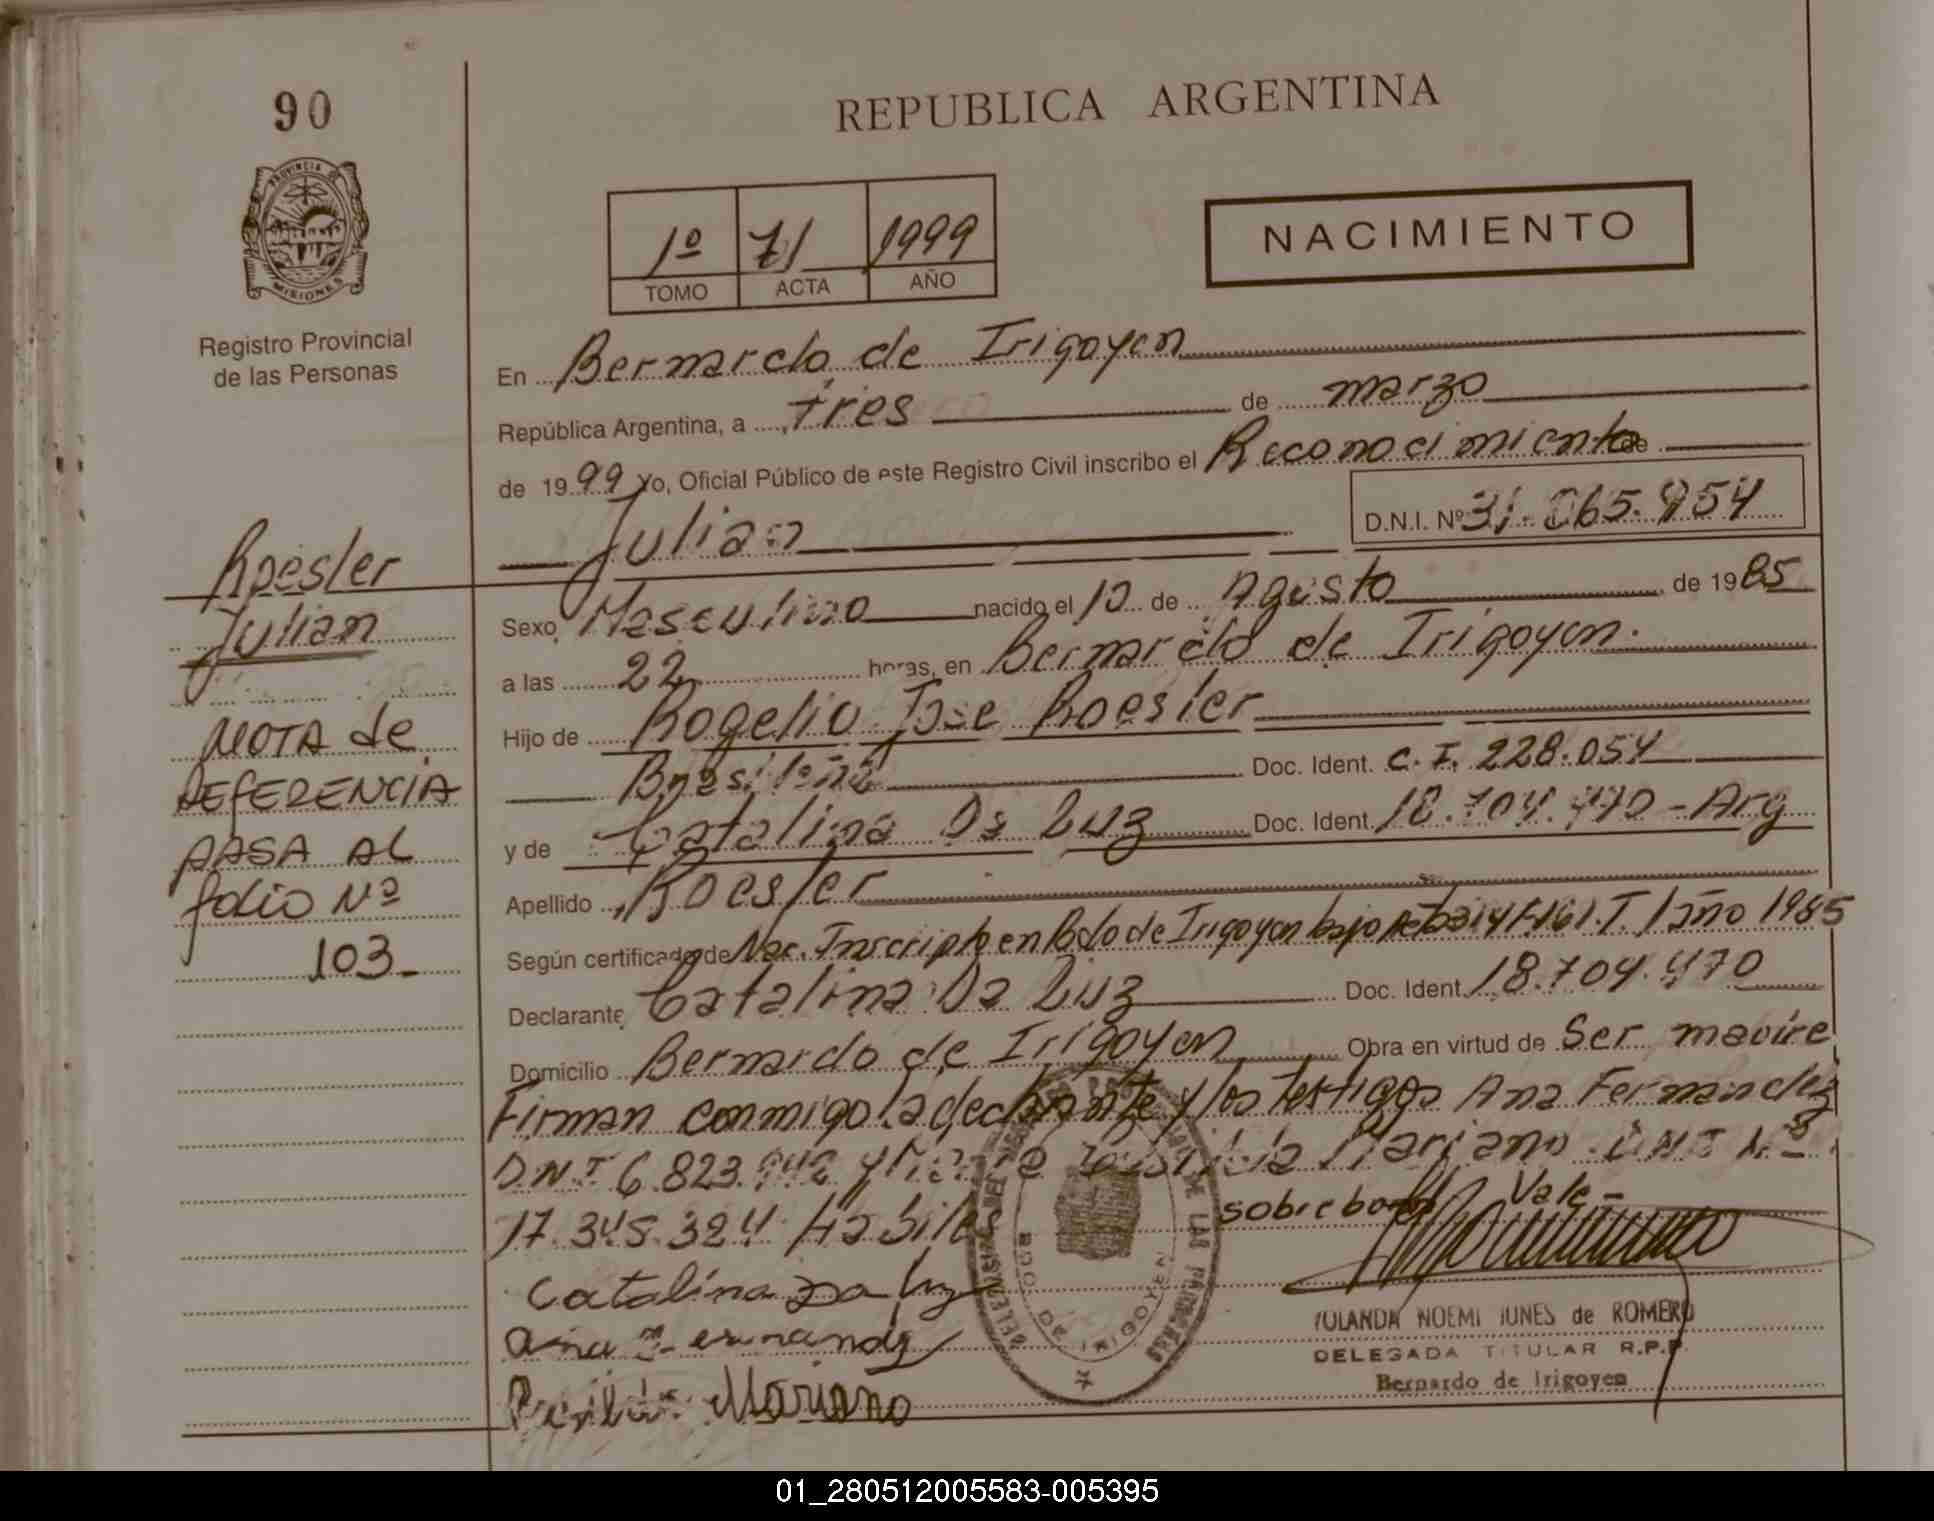 90
PROVINCIA DE
MISIONES
Registro Provincial
de las Personas
REPUBLICA ARGENTINA
1º 71 1999
TOMO ACTA AÑO
NACIMIENTO
En Bernardo de Irigoyen
República Argentina, a tres de marzo
de 1999 Yo, Oficial Público de este Registro Civil inscribo el Reconocimiento de
Julian D.N.I. Nº
Sexo Masculino nacido el 10 de Agosto de 1985
a las 22 horas, en Bernardo de Irigoyen.
Hijo de Rogelio Jose Roesler
Brasileña Doc. Ident. C.I. 228.054
y de Catalina Da Luz Doc. Ident. 18.704.470 - Arg
Apellido Roesler
Según certificado de Nac. Inscripto en Bdo de Irigoyen bajo año 1985
Declarante Catalina Da Luz Doc. Ident. 18.704.470
Domicilio Bernardo de Irigoyen Obra en virtud de Ser madre
Firman conmigo la declarante y los testigos Ana Fernandez
D.N.I 6.823. y Mariano D.N.I Nº
17.345.324 Habiles sobreborrado Vale -
Catalina Da Luz
Ana Fernandez
Mariano
YOLANDA NOEMI NUNES de ROMERO
DELEGADA TITULAR R.P.P.
Bernardo de Irigoyen
Roesler
Julian
NOTA de
REFERENCIA
PASA AL
folio Nº
103_
01_280512005583-005395